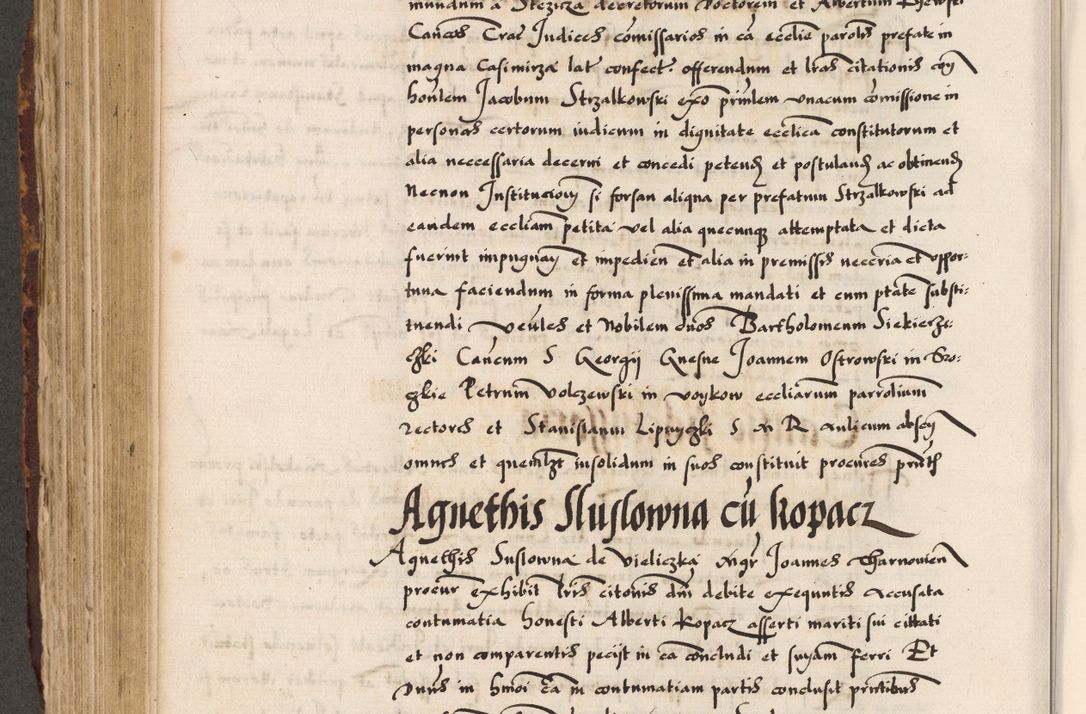 mundum a Stezicza decretorum Doctorem et Albertum
Cancos Crac Judices comissarios in ca ecclie parolis prefate in
magna Casimirza lat confect offerendum et lras citationis con
honlem Jacobum Strzalkowski exo primlem vnacum comissione in
personas certorum iudicum in dignitate ecclica constitutorum et
alia neccessaria decerni et concedi petend et postuland ac obtinend
Necnon Institucioni si forsan aliqua per prefatum Strzalkowski ad
eandem eccliam petita vel alia quecunq attemptata et dicta
fuerint impugnan et impedien et alia in premissis necceria et oppor:
tuna faciendum in forma plenissima mandati et cum ptate substi:
tuendi veules et Nobilem duos Bartholomeum Siekierz:
czki Cancum S Georgij Gnesne Joannem Ostrowski in Gro:
czkie Petrum Volczewski in voykow eccliarum parrolium
rectores et Stanislaum Lipniczki S M R Aulicum absen
omnes et quemlzt insolidum in suos constituit procures pntis
Agnethis Sluslowna cu kopacz
Agnethis Suslowna de vieliczka mgr Joannes Tharnowien
procur exhibit lris citonis dni debite exequntis Accusata
contumatia honesti Alberti kopacz asserti mariti sui cittati
et non comparentis pecijt in ca concludi et suyam ferri Et
Dnus in hmoi ca in contumatiam partis conclusit pntibus